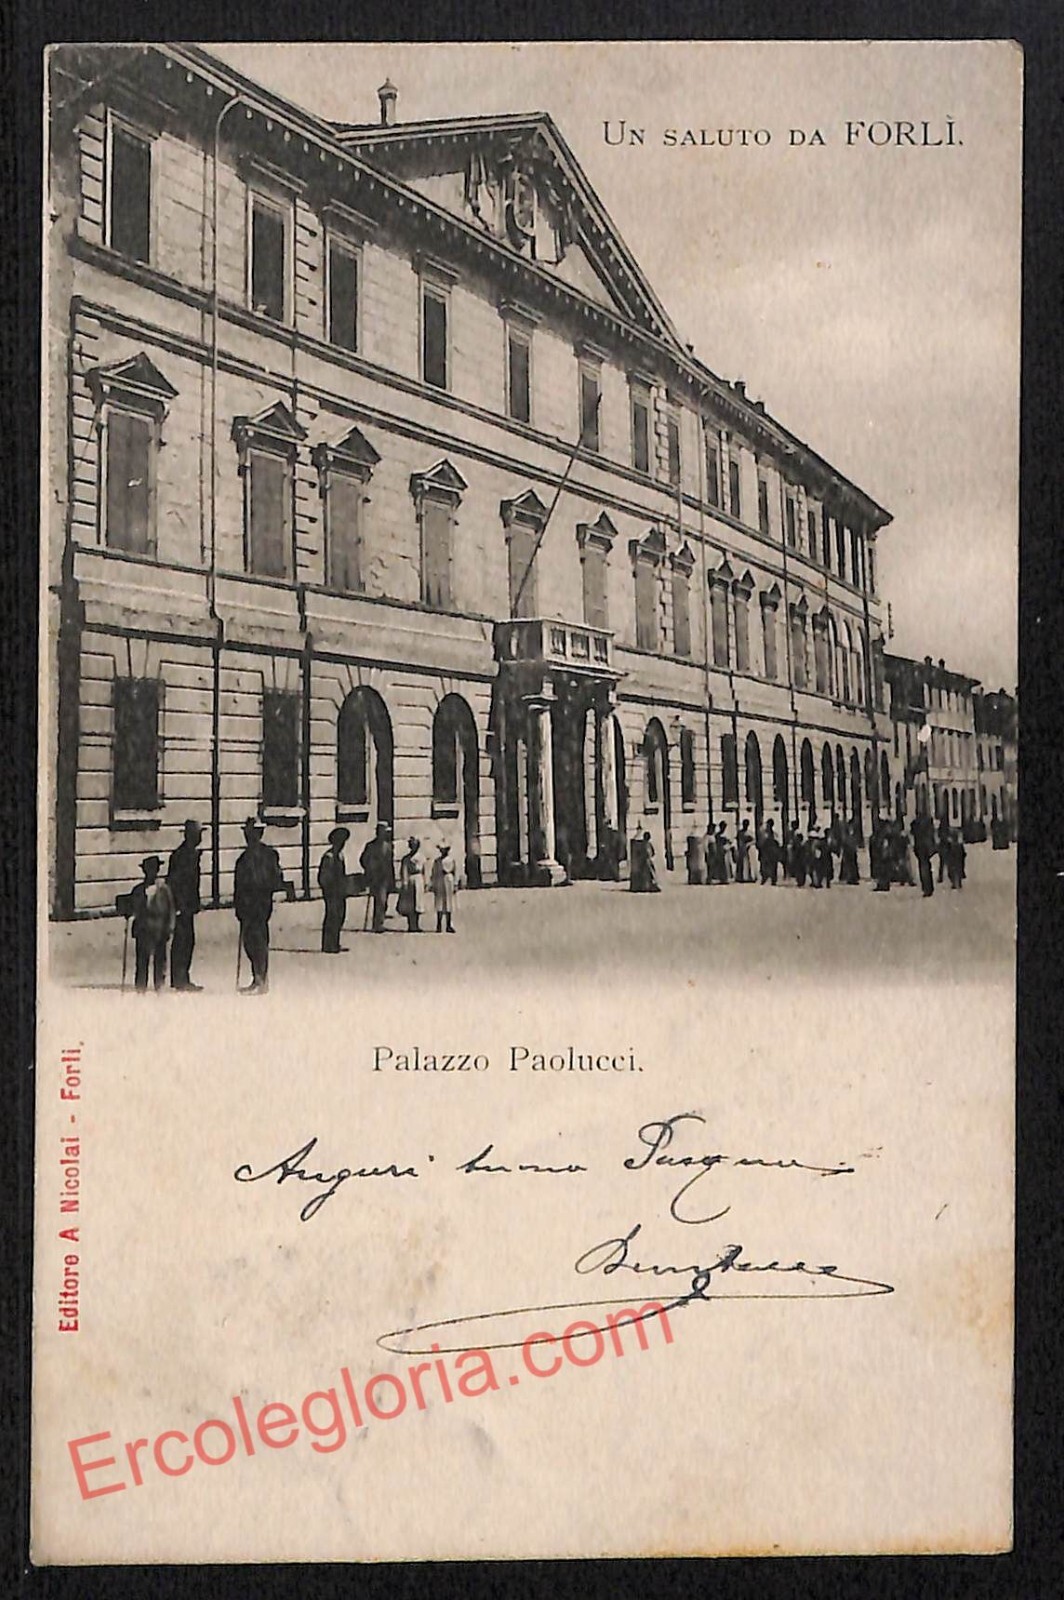 UN SALUTO DA FORLÌ.
Palazzo Paolucci.
Editore A Nicolai - Forlì.
Auguri buona Pasqua
Ercolegloria.com